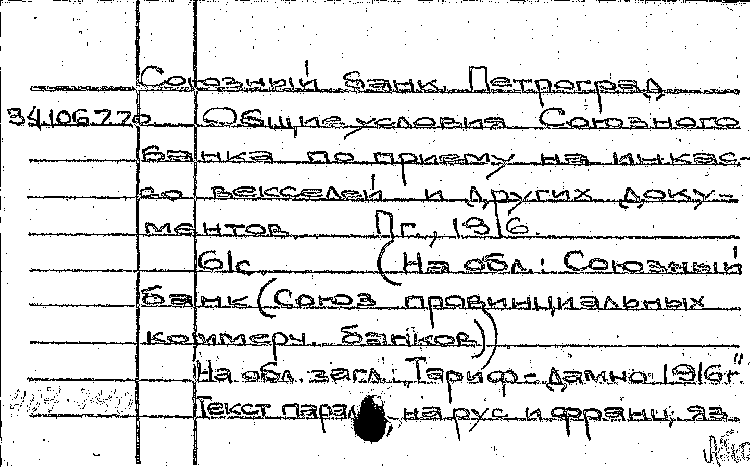 Союзный банк. Петроград
34.106.7.20 Общие условия Союзного
банка по приему на инкас-
со векселей и других доку-
ментов. Пг., 1916.
61с. (На обл.: Союзный
банк (Союз провинциальных
коммерч. банков))
На обл. загл.: Тариф-дамно 1916г."
Текст парал., на рус. и франц. яз.